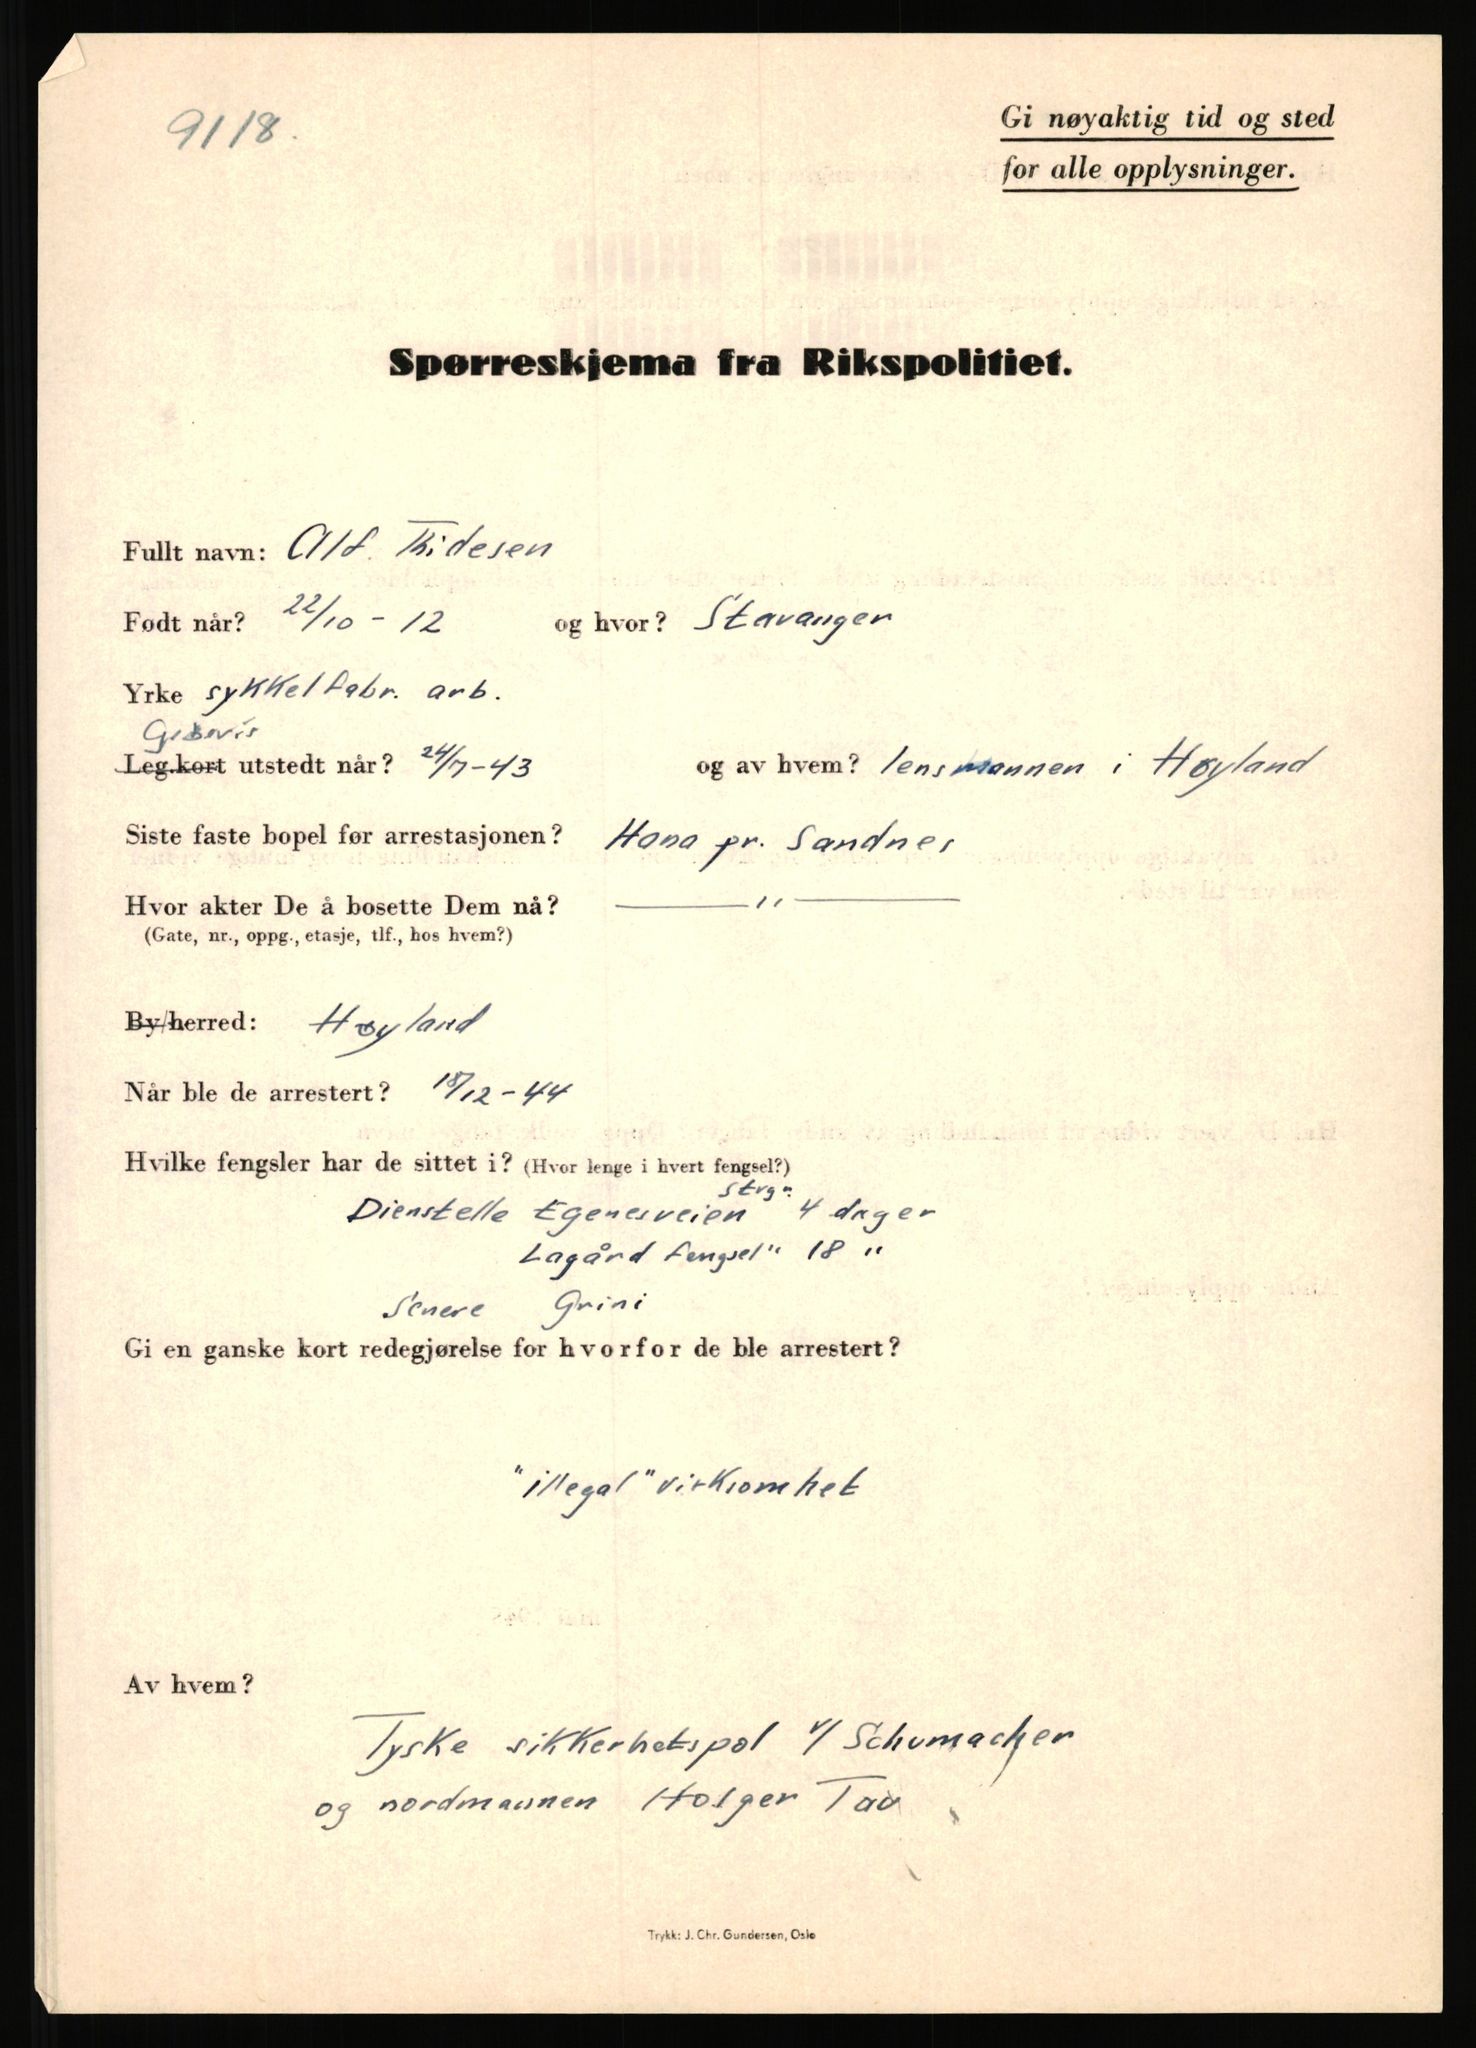 9118.
Gi nøyaktig tid og sted
for alle opplysninger.
Spørreskjema fra Rikspolitiet.
Fullt navn: Alf. Thidesen
Født når? 22/10 - 12 og hvor? Stavanger
Yrke sykkelfabr. arb.
Gr.bevis
Leg.kort utstedt når? 24/7-43 og av hvem? lensmannen i Høyland
Siste faste bopel før arrestasjonen? Hana pr. Sandnes
Hvor akter De å bosette Dem nå? — " —
(Gate, nr., oppg., etasje, tlf., hos hvem?)
By/herred: Høyland
Når ble de arrestert? 18/12-44
Hvilke fengsler har de sittet i? (Hvor lenge i hvert fengsel?)
Dienstelle Egenesveien Stvgr. 4 dager
Lagård fengsel " 18 "
Senere Grini
Gi en ganske kort redegjørelse for hvorfor de ble arrestert?
"illegal" virksomhet
Av hvem?
Tyske sikkerhetspol v/ Schumacher
og nordmannen Holger Tou
Trykk: J. Chr. Gundersen, Oslo